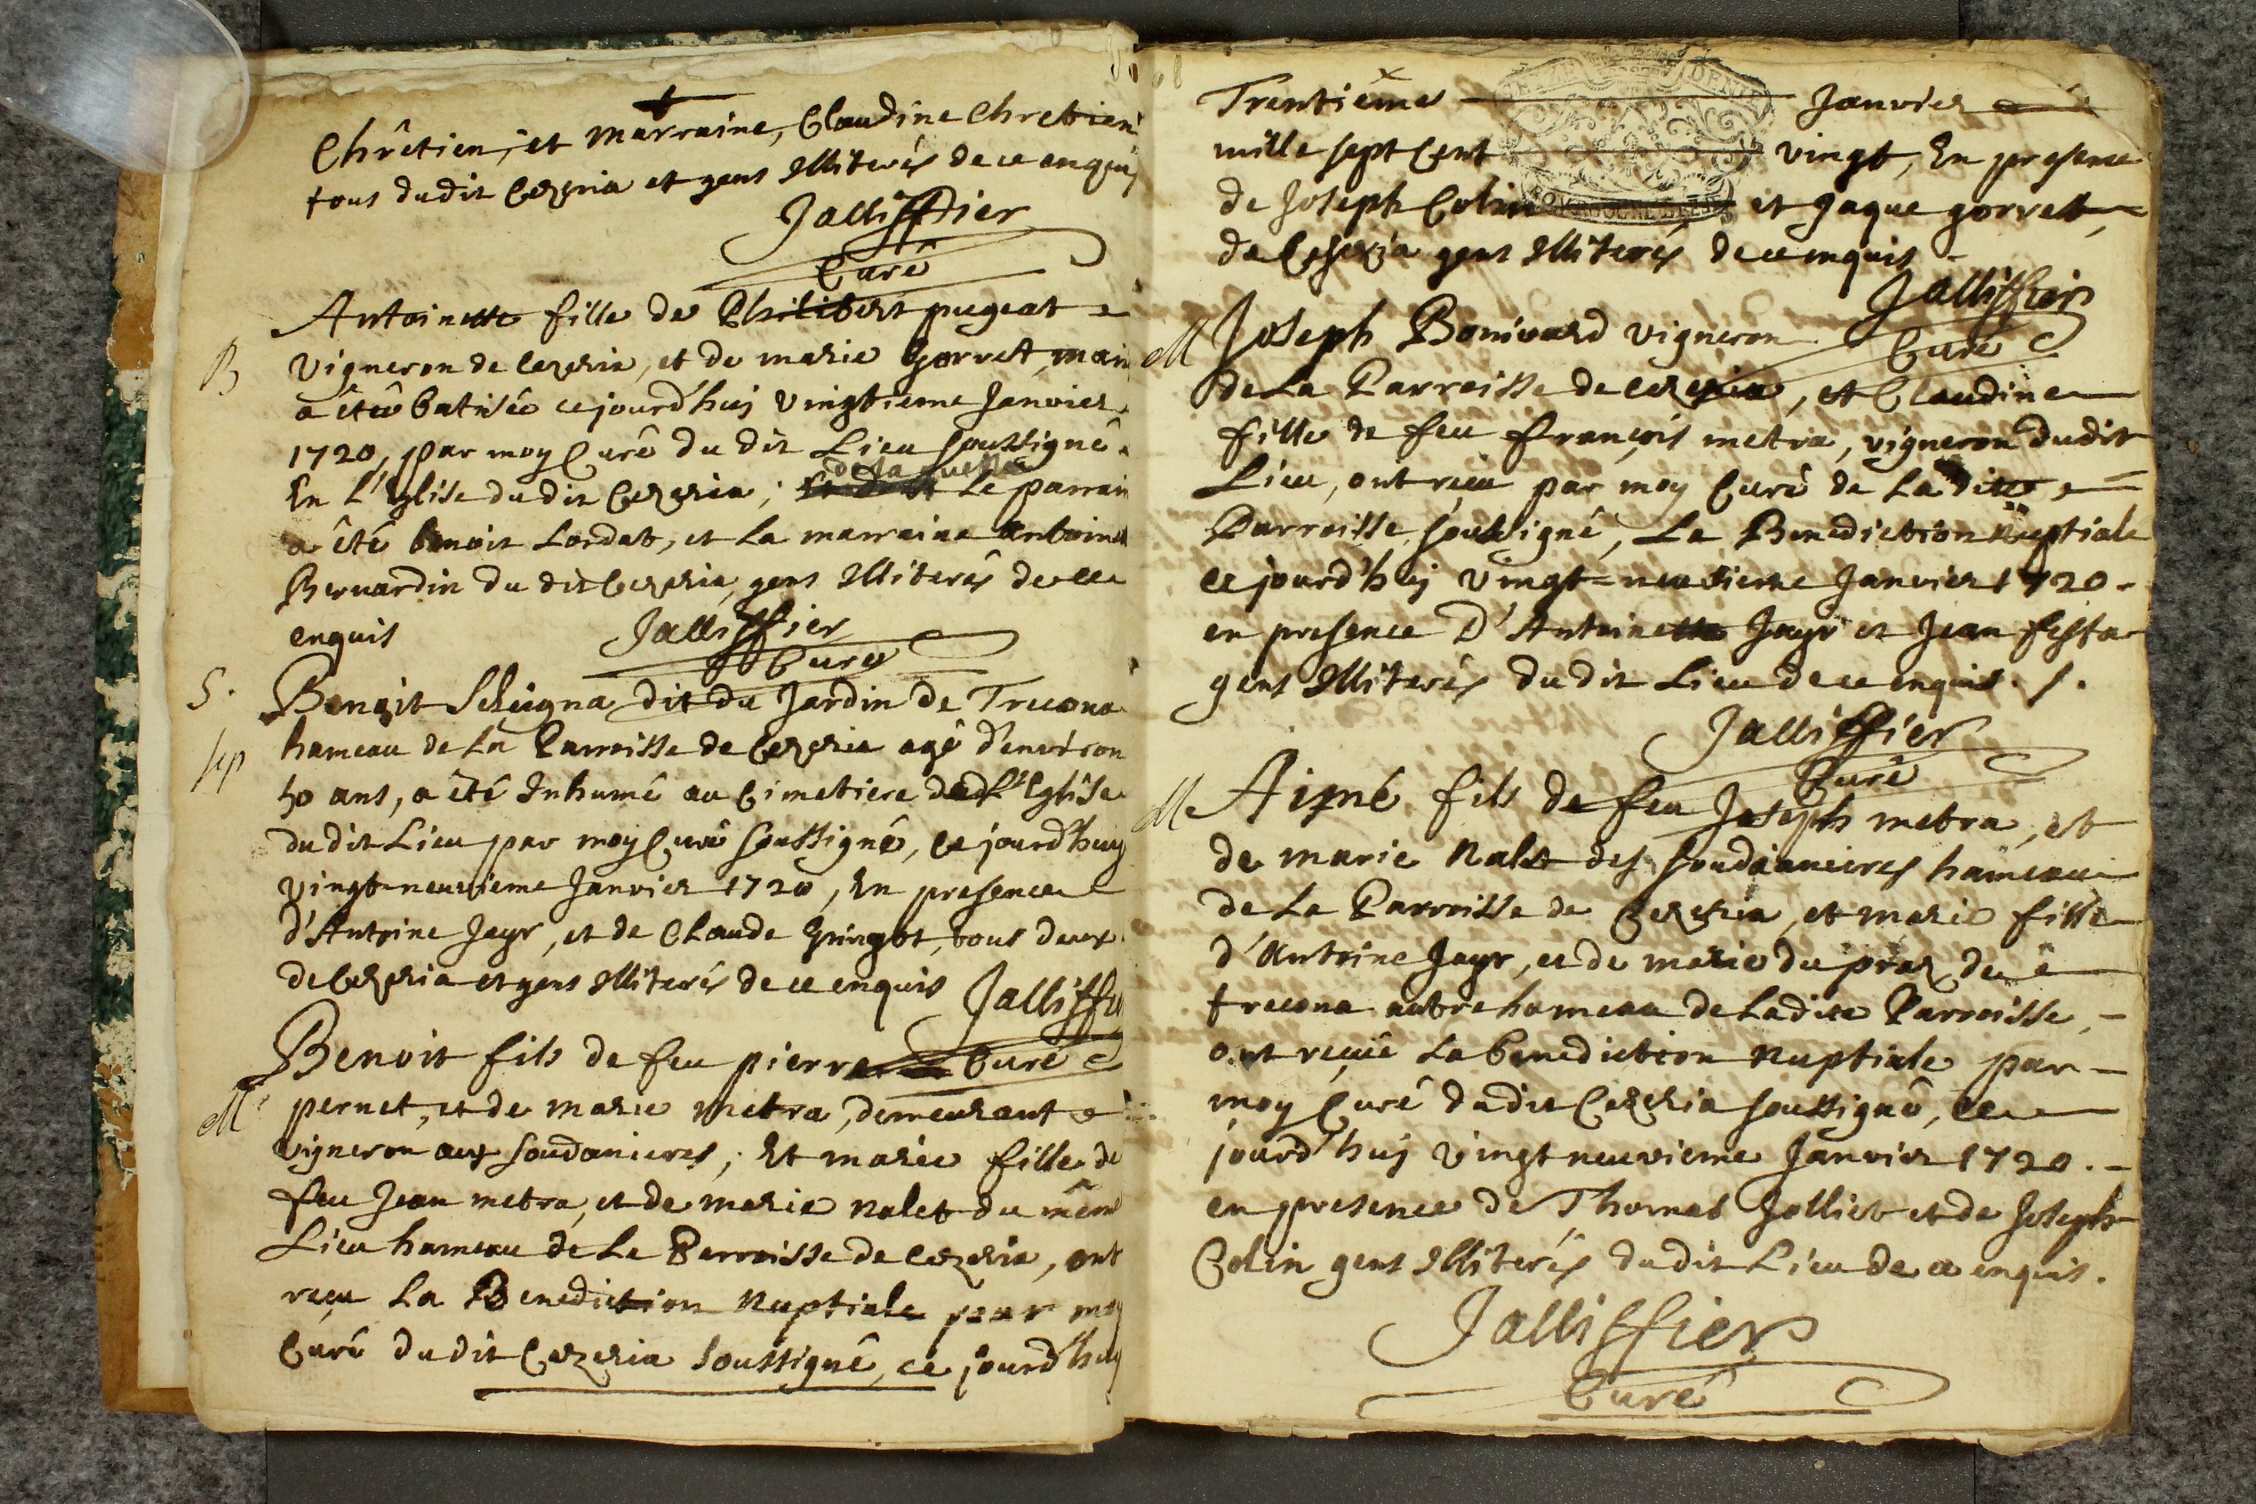 Chrêtien, et marraine, Claudine Chretien
tous dudit Cezeria et gens Illiterés de ce enquis
Jalliffier
Curé
B
Antoinette fille de Philibert pugeat
vigneron de Cezeria, et de marie Gorret,
a êtée batisée cejourd'huy vingtieme Janvier
1720, par moy Curé du dit Lieu soussigné
de laquelle
En l'Eglise du dit Cezeria; Le parrain
a êté benoit Lordat, et la marraine Antoine
Bernardin du dit Cezeria, gens Illiterés de ce
enquis
Jalliffier
Curé
S.
sep
Benoit dit du Jardin de Trecona
hameau de La Parroisse de Cezeria agé d'environ
50 ans, a êté Inhumé au Cimetiere de l'Eglise
dudit Lieu par moy Curé soussigné, ce jourd'huy
vingt-neuvieme Janvier 1720, En presence
d'Antoine Jayr, et de Claude tous deux
de Cezeria et gens Illiterés de ce enquis
Jalliffier
Curé
M
Benoit fils de feu pierre
pernet, et de marie metra, demeurant
vigneron aux soudanieres; Et marie fille de
feu Jean metra, et de marie nalet du même
Lieu hameau de La Parroisse de Cezeria, ont
reçu La Benediction Nuptiale par moy
Curé dudit Cezeria soussigné, ce jourd'huy
Trentième Janvier
mille sept Cent vingt, En presence
de Joseph Colin et Jaque gorret
de Ceseria gens Illiterés de ce enquis
Jalliffier
Curé
M
Joseph Bonivard vigneron
de La Parroisse de Cezeria, et Claudine
fille de feu françois metra, vigneron dudit
Lieu, ont reçu par moy Curé de La dite
Parroisse soussigné, La Benediction Nuptiale
ce jourd'huy vingt-neuvieme Janvier 1720.
en presence D'Antoinette Jayr et Jean festa
gens Illiterés du dit Lieu de ce enquis. s.
Jalliffier
Curé
M
Aimé fils de feu Joseph metra, et
de marie Nalet des soudanieres hameau
de La Parroisse de Cezeria, et marie fille
d'Antoine Jayr, et de marie du praz de
trecona autre hameau de Ladite Parroisse,
ont reçue La benediction Nuptiale par
moy Curé dudit Cezeria soussigné, ce
jourd'huy vingt neuvieme Janvier 1720.
en presence de Thomas Jolliet et de Joseph
Colin gens Illiterés dudit Lieu de ce enquis.
Jalliffier
Curé